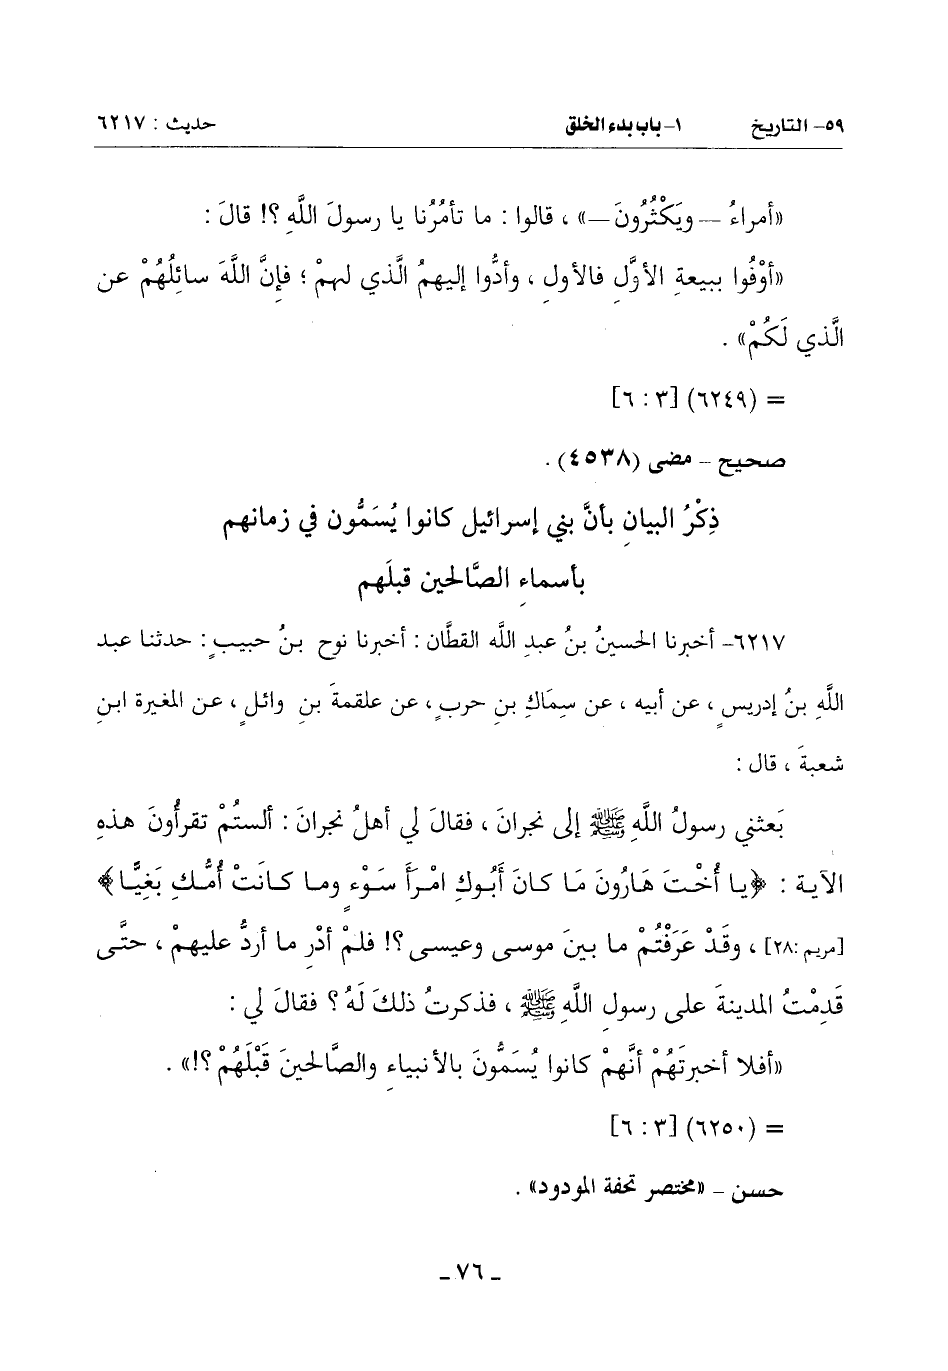 ٥٩- التاريخ ١- باب بدء الخلق حديث : ٦٢١٧
«أمراءُ — ويَكْثُرُونَ —» ، قالوا : ما تأمُرُنا يا رسولَ اللَّهِ ؟! قالَ :
«أوْفُوا ببيعةِ الأوَّلِ فالأولِ ، وأدُّوا إليهمُ الَّذي لهمْ ؛ فإنَّ اللَّهَ سائلُهُمْ عن
الَّذي لَكُمْ» .
= (٦٢٤٩) [٣ : ٦]
صحيح - مضى (٤٥٣٨) .
ذِكْرُ البيانِ بأنَّ بني إسرائيل كانوا يُسَمُّون في زمانهم
بأسماءِ الصَّالحين قبلَهم
٦٢١٧- أخبرنا الحسينُ بنُ عبدِ اللَّه القطَّان : أخبرنا نوح بنُ حبيبٍ : حدثنا عبد
اللَّهِ بنُ إدريسٍ ، عن أبيه ، عن سِمَاكِ بنِ حربٍ ، عن علقمةَ بنِ وائلٍ ، عن المغيرة ابنِ
شعبةَ ، قال :
بَعثني رسولُ اللَّهِ ﷺ إلى نجرانَ ، فقالَ لي أهلُ نجرانَ : ألستُمْ تقرأُونَ هذهِ
الآية : ﴿يا أُخْتَ هَارُونَ مَا كانَ أَبُوكِ امْرَأَ سَوْءٍ وما كانَتْ أُمُّكِ بَغِيًّا﴾
[مريم :٢٨] ، وقَدْ عَرَفْتُمْ ما بينَ موسى وعيسى ؟! فلمْ أدْرِ ما أردُّ عليهمْ ، حتَّى
قَدِمْتُ المدينةَ على رسولِ اللَّهِ ﷺ ، فذكرتُ ذلكَ لَهُ ؟ فقالَ لي :
«أفلا أخبرتَهُمْ أنَّهمْ كانوا يُسَمُّونَ بالأنبياءِ والصَّالحينَ قَبْلَهُمْ ؟!» .
= (٦٢٥٠) [٣ : ٦]
حسن - «مختصر تحفة المودود» .
- ٧٦ -